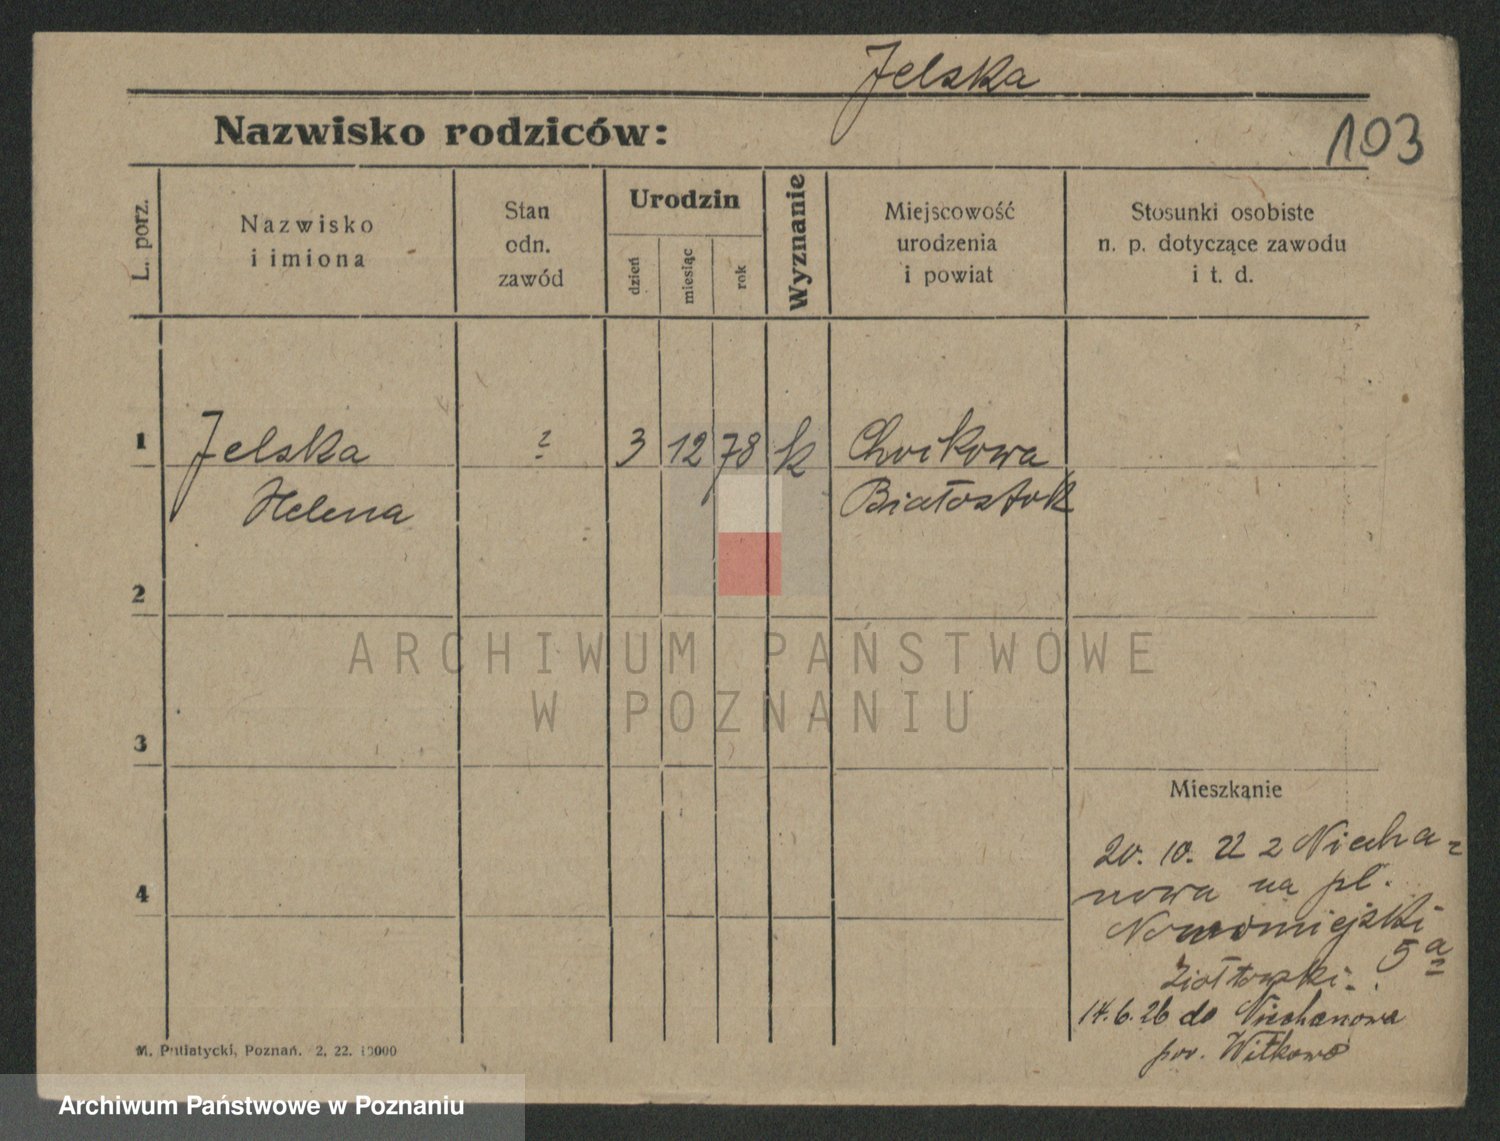 Jelska
Nazwisko rodziców:
103
L. porz.
Nazwisko
i imiona
Stan
odn.
zawód
Urodzin
dzień
miesiąc
rok
Wyznanie
Miejscowość
urodzenia
i powiat
Stosunki osobiste
n. p. dotyczące zawodu
i t. d.
1
Jelska
Helena
?
3
12
78
k
Białostok
2
3
4
Mieszkanie
20. 10. 22 z Niecha-
nowa na pl.
Nowomiejski
5 a
14. 6. 26 do Niechanowa
pow. Witkowo
M. Putiatycki, Poznań. 2, 22. 10000
ARCHIWUM PAŃSTWOWE
W POZNANIU
Archiwum Państwowe w Poznaniu